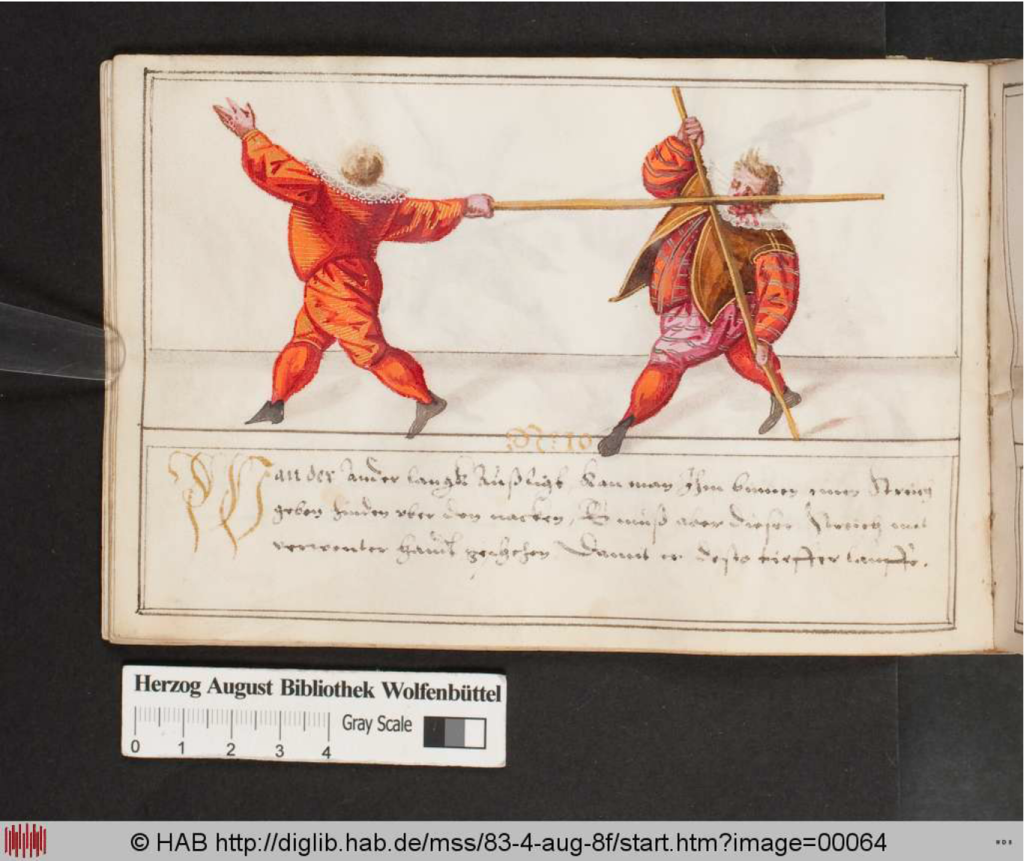 N: 10
Wan der ander langk Außligt, Kan man Ihm binnen einen Streich
geben hinden vber den nacken, Es muß aber dieser Streich mit
verwenter handt geschehen, Damit er desto tieffer lauffe.
Herzog August Bibliothek Wolfenbüttel
Gray Scale
0 1 2 3 4
© HAB http://diglib.hab.de/mss/83-4-aug-8f/start.htm?image=00064